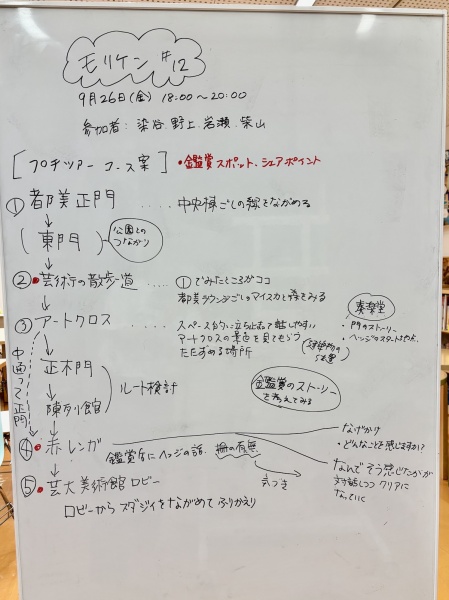 モリケン #12
9月26日(金) 18:00～20:00
参加者: 染谷.野上.岩瀬.柴山
[プチツアー コース案] ・鑑賞スポット、シェアポイント
① 都美正門 ..... 中央棟ごしの緑をながめる
↓
(東門) 公園とのつながり
↓
②・芸術の散歩道 ..... ①でみたところがココ
都美ラウンジごしのマイスカと
③ アートクロス ..... スペース的に立ち止まって話しやすい
アートクロスの景色を見てもらう
たたずめる場所
奏楽堂
・門のストーリー
・ヘッジのスタート
↓
正木門
↓
陳列館
ルート検討
中通って正門
鑑賞のストーリーを考えてみる
↓
④・赤レンガ
鑑賞後にヘッジの話. 柵の有無
気づき
なげかけ
・どんなことを感じますか?
なんでそう感じたかが
対話しつつクリアに
なっていく
↓
⑤・芸大美術館ロビー
ロビーからスダジイをながめてふりかえり